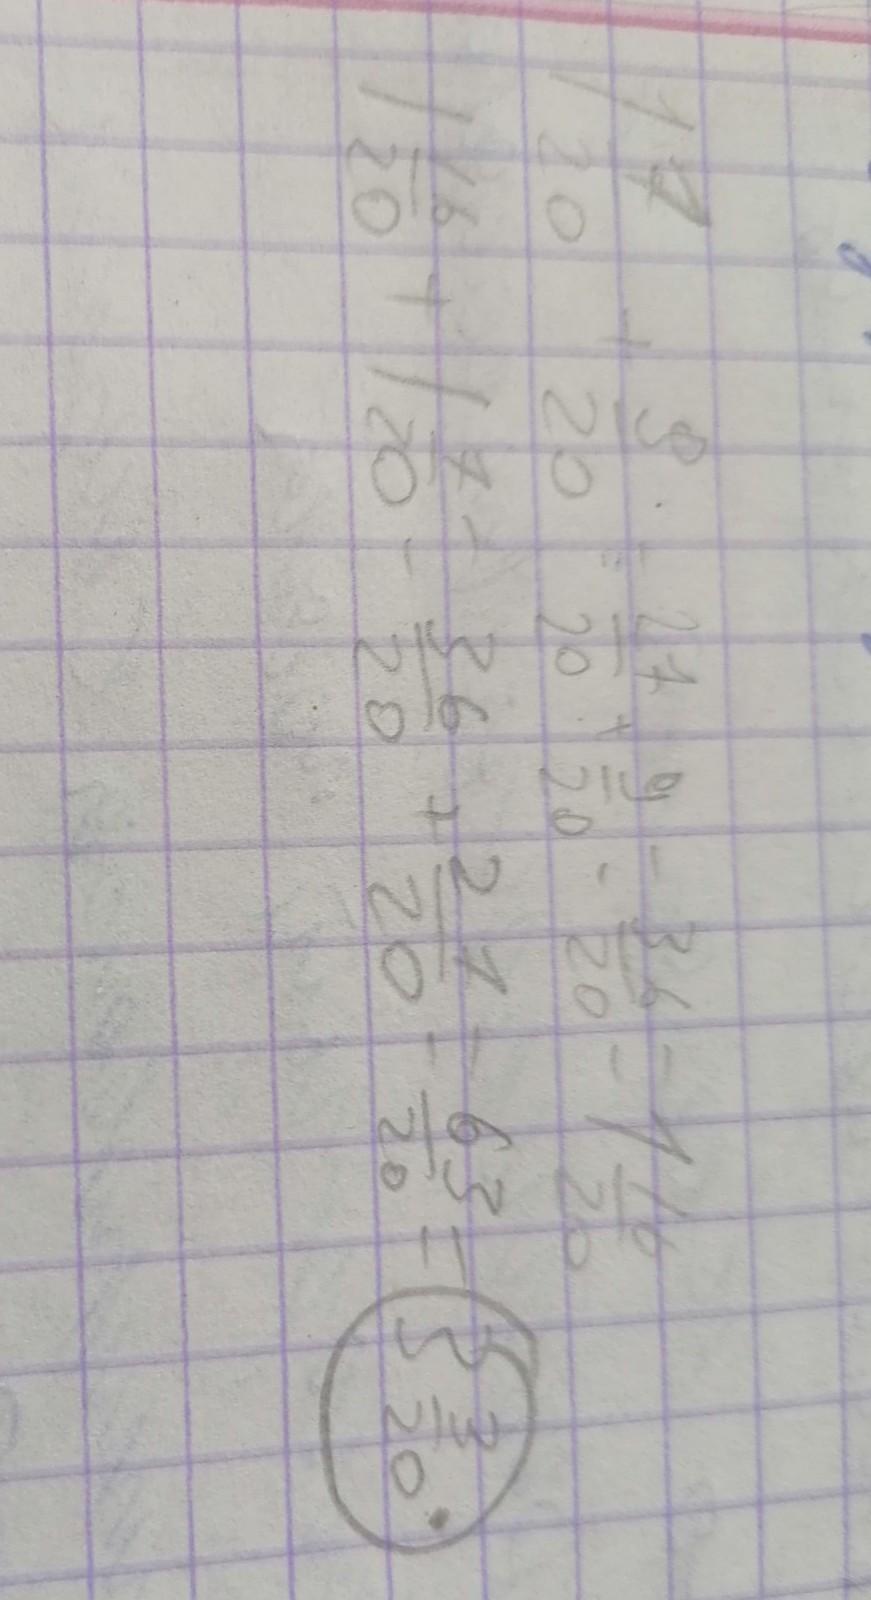 1 7/20 + 9/20 = 27/20 + 9/20 = 36/20 = 1 16/20
1 16/20 + 1 7/20 = 36/20 + 27/20 = 63/20 = 3 3/20.